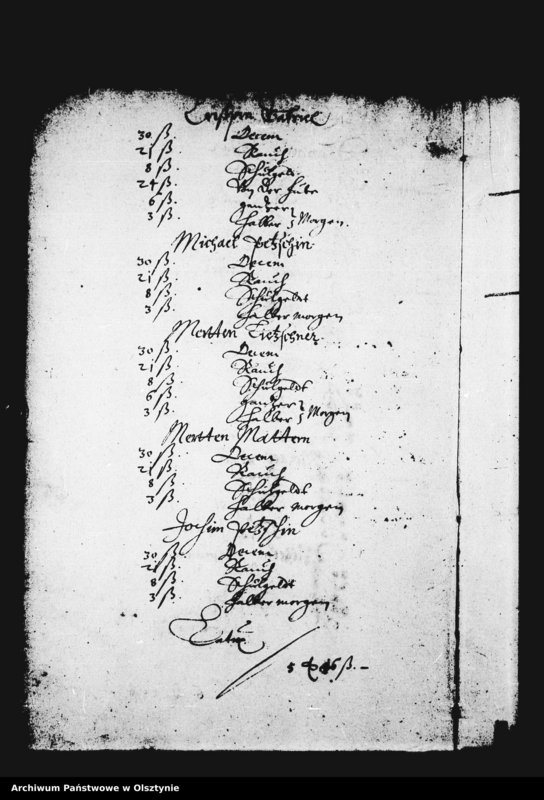 Cristina Gabriel
30 ß. Decem
21 ß. Rauch
8 ß. Schulgeldt
24 ß. Von der Hube
6 ß. gantzer
3 ß. halber Morgen.
Michael Petzschin
30 ß. Decem
21 ß. Rauch
8 ß. Schulgeldt
3 ß. halber morgen
Mertten Tietzschner
30 ß. Decem
21 ß. Rauch
8 ß. Schulgeldt
6 ß. gantzer
3 ß. halber Morgen
Mertten Mattern
30 ß. Decem
21 ß. Rauch
8 ß. Schulgeldt
3 ß. halber morgen
Jochim Petzschin
30 ß. Decem
21 ß. Rauch
8 ß. Schulgeldt
3 ß. halber morgen
Latus
5 46 ß. –
Archiwum Państwowe w Olsztynie